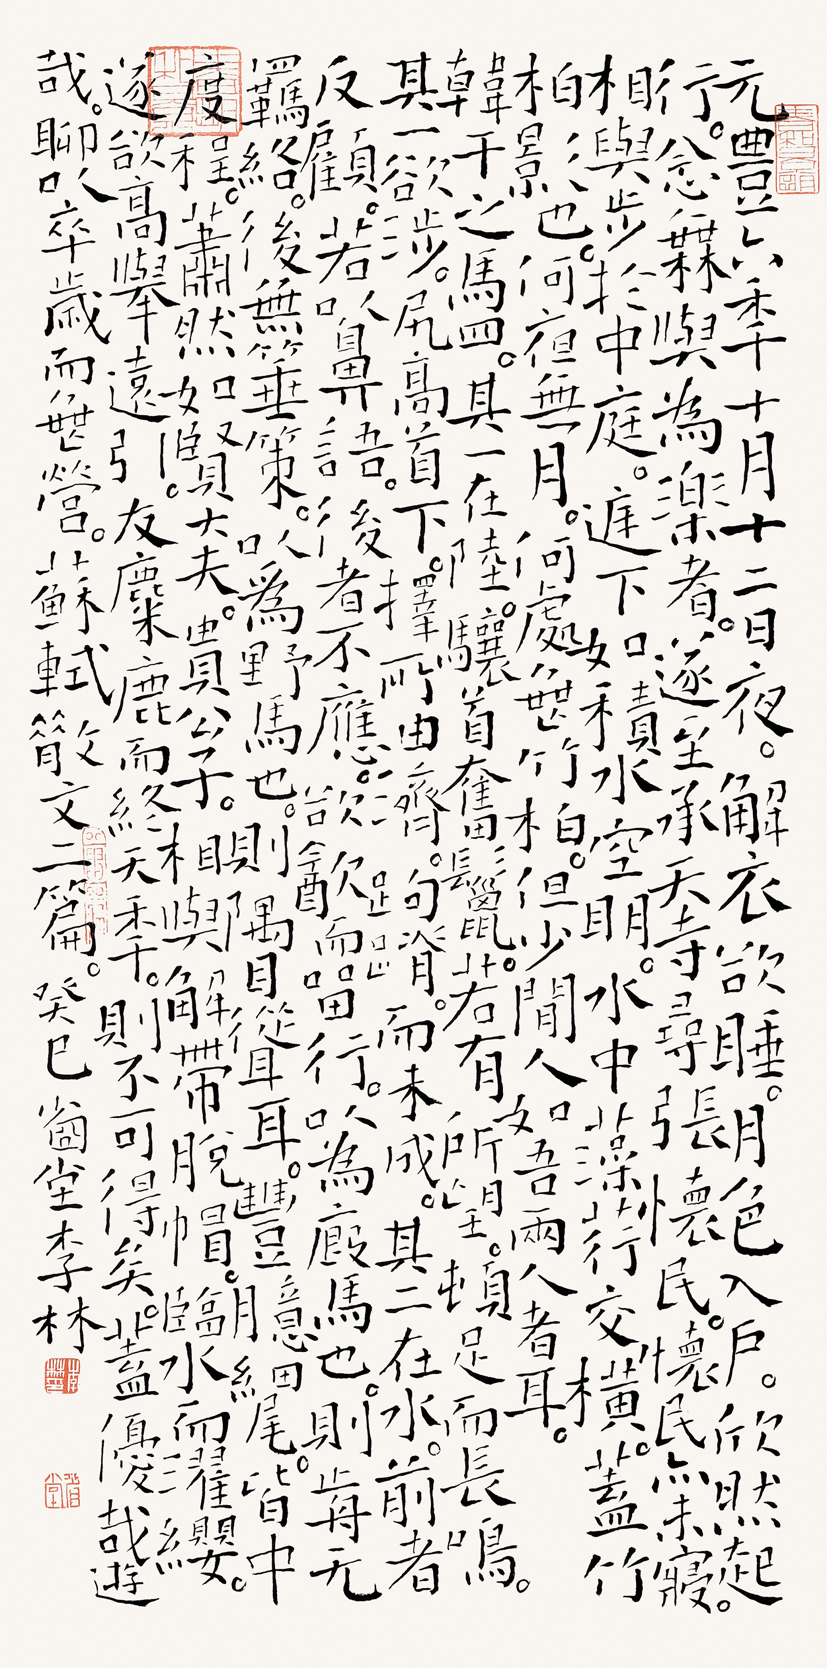 元豐六秊十月十二日夜。解衣欲睡。月色入戶。欣然起
行。念無與為樂者。遂至承天寺尋張懷民。懷民亦未寢。
相與步於中庭。庭下如積水空明。水中藻荇交橫。蓋竹
柏影也。何夜無月。何處無竹柏。但少閒人如吾兩人者耳。
韓干之馬四。其一在陸。驤首奮鬣。若有所望。頓足而長鳴。
其一欲涉。尻高首下。擇所由濟。跼蹐而未成。其二在水。前者
反顧。若以鼻語。後者不應。欲飲而留行。以為廄馬也。則前无
羈絡。後無箠策。以為野馬也。則隅目聳耳。豐臆細尾。皆中
度程。蕭然如賢大夫。貴公子。相與解帶脫帽。臨水而濯纓。
遂欲高舉遠引。友麋鹿而終天秊。則不可得矣。蓋優哉遊
哉。聊以卒歲而無營。蘇軾散文二篇。癸巳堂李林